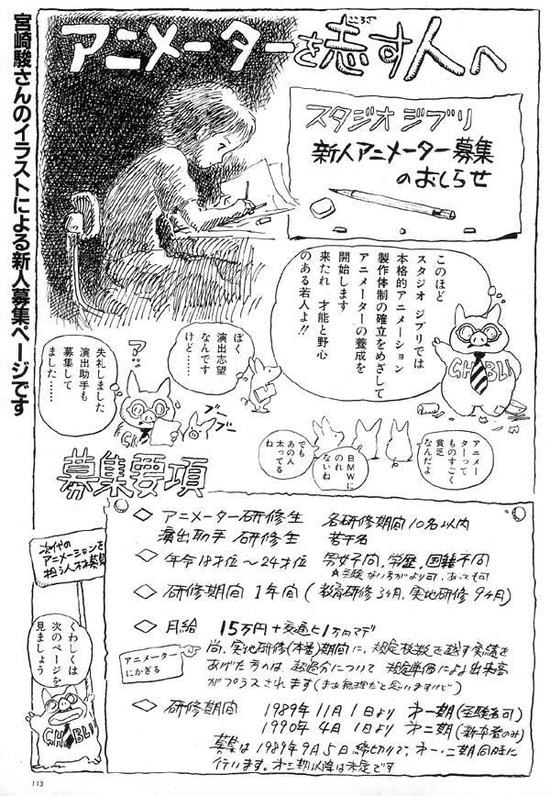 宮崎駿さんのイラストによる新人募集ページです
アニメーターを志す人へ
こころざ
スタジオ ジブリ
新人アニメーター募集
のおしらせ
このほど
スタジオ ジブリでは
本格的アニメーション
製作体制の確立をめざして
アニメーターの養成を
開始します
来たれ 才能と野心
のある若人よ!!
GHIBLI
ぼく
演出志望
なんです
けど…
失礼しました
演出助手も
募集して
ました……
ブーブー
アニメー
ターって
ものすごく
貧乏
なんだよ
BMWに
のれ
ないね
でも
あの人
太ってる
ね
募集要項
◇ アニメーター研修生 各研修期間10名以内
演出助手 研修生 若干名
◇ 年令18才位〜24才位 男女不問、学歴、国籍不問
◇ 研修期間 1年間(教育研修3ヶ月、実地研修9ヶ月)
◇ 月給 15万円+交通ヒ1万円マデ
アニメーター
にかぎる
尚、実地研修(本番)期間に、規定枚数を越す実績を
あげた方のは 超過分について 規定単価による出来高
がプラスされます(まず無理だと思いますけど)
◇ 研修期間 1989年11月1日より 第一期(経験者可)
1990年4月1日より 第二期(新卒者のみ)
募集は1989年9月5日締切りで、第一・二期同時に
行います。第三期以降は未定です
次代の
アニメーションを
担う人材募集
くわしくは
次のページを
見ましょう
GHIBLI
113